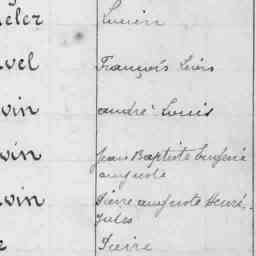 eler Lucien
vel François Louis
win andré Louis
win Jean Baptiste Eugène
auguste
win Pierre auguste Henri
Jules
e Pierre